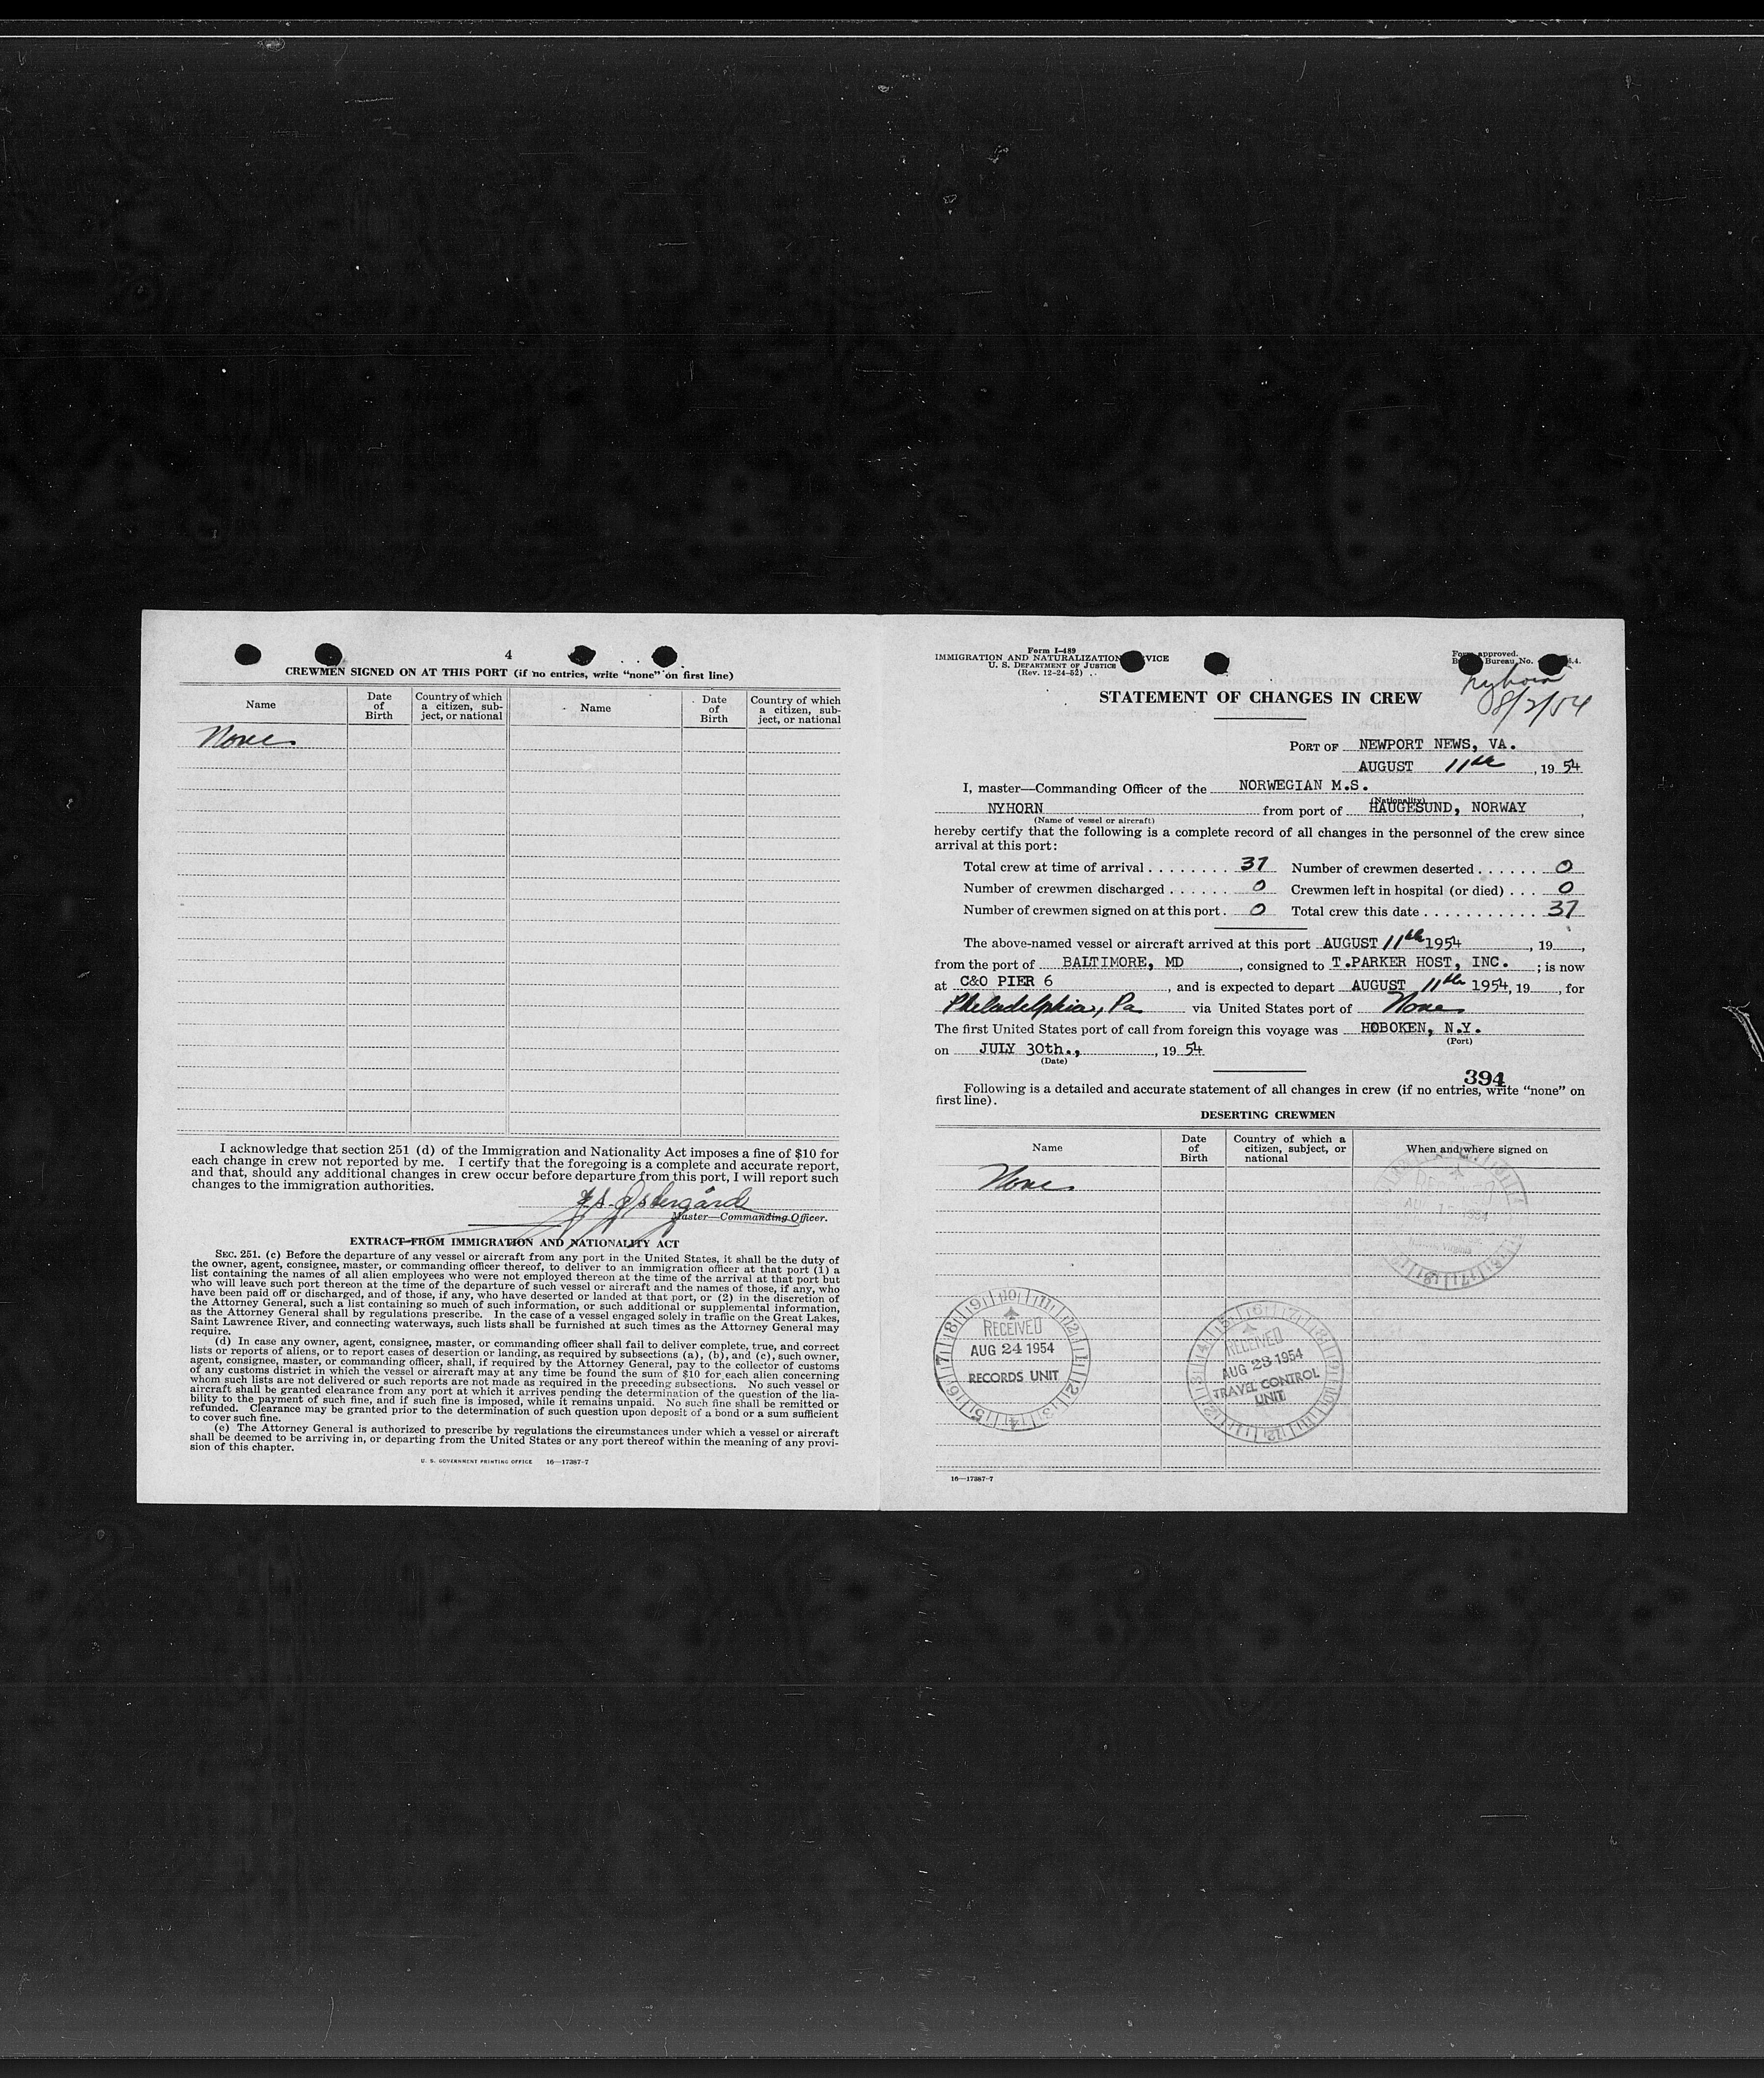 4
CREWMEN SIGNED ON AT THIS PORT (if no entries, write “none” on first line)
Name
Date of Birth
Country of which a citizen, subject, or national
Name
Date of Birth
Country of which a citizen, subject, or national
None
I acknowledge that section 251 (d) of the Immigration and Nationality Act imposes a fine of $10 for
each change in crew not reported by me. I certify that the foregoing is a complete and accurate report,
and that, should any additional changes in crew occur before departure from this port, I will report such
changes to the immigration authorities.
Master—Commanding Officer.
EXTRACT FROM IMMIGRATION AND NATIONALITY ACT
SEC. 251. (c) Before the departure of any vessel or aircraft from any port in the United States, it shall be the duty of
the owner, agent, consignee, master, or commanding officer thereof, to deliver to an immigration officer at that port (1) a
list containing the names of all alien employees who were not employed thereon at the time of the arrival at that port but
who will leave such port thereon at the time of the departure of such vessel or aircraft and the names of those, if any, who
have been paid off or discharged, and of those, if any, who have deserted or landed at that port, or (2) in the discretion of
the Attorney General, such a list containing so much of such information, or such additional or supplemental information,
as the Attorney General shall by regulations prescribe. In the case of a vessel engaged solely in traffic on the Great Lakes,
Saint Lawrence River, and connecting waterways, such lists shall be furnished at such times as the Attorney General may
require.
(d) In case any owner, agent, consignee, master, or commanding officer shall fail to deliver complete, true, and correct
lists or reports of aliens, or to report cases of desertion or landing, as required by subsections (a), (b), and (c), such owner,
agent, consignee, master, or commanding officer, shall, if required by the Attorney General, pay to the collector of customs
of any customs district in which the vessel or aircraft may at any time be found the sum of $10 for each alien concerning
whom such lists are not delivered or such reports are not made as required in the preceding subsections. No such vessel or
aircraft shall be granted clearance from any port at which it arrives pending the determination of the question of the lia-
bility to the payment of such fine, and if such fine is imposed, while it remains unpaid. No such fine shall be remitted or
refunded. Clearance may be granted prior to the determination of such question upon deposit of a bond or a sum sufficient
to cover such fine.
(e) The Attorney General is authorized to prescribe by regulations the circumstances under which a vessel or aircraft
shall be deemed to be arriving in, or departing from the United States or any port thereof within the meaning of any provi-
sion of this chapter.
U. S. GOVERNMENT PRINTING OFFICE 16—17387-7
Form I-489
IMMIGRATION AND NATURALIZATION
U. S. DEPARTMENT OF JUSTICE
(Rev. 12-24-52)
Form approved.
Bureau No.
Nyhorn
8/2/54
STATEMENT OF CHANGES IN CREW
PORT OF NEWPORT NEWS, VA.
AUGUST 11th, 1954
I, master—Commanding Officer of the NORWEGIAN M.S.
(Nationality)
NYHORN from port of HAUGESUND, NORWAY,
(Name of vessel or aircraft)
hereby certify that the following is a complete record of all changes in the personnel of the crew since
arrival at this port:
Total crew at time of arrival . . . . . . . . 37 Number of crewmen deserted . . . . . . 0
Number of crewmen discharged . . . . . . 0 Crewmen left in hospital (or died) . . . 0
Number of crewmen signed on at this port . 0 Total crew this date . . . . . . . . . . . . 37
The above-named vessel or aircraft arrived at this port AUGUST 11th 1954, 19,
from the port of BALTIMORE, MD, consigned to T.PARKER HOST, INC. ; is now
at C&O PIER 6, and is expected to depart AUGUST 11th 1954, 19, for
Philadelphia, Pa via United States port of None
The first United States port of call from foreign this voyage was HOBOKEN, N.Y.
(Port)
on JULY 30th., , 1954
(Date)
394
Following is a detailed and accurate statement of all changes in crew (if no entries, write “none” on
first line).
DESERTING CREWMEN
Name
Date of Birth
Country of which a citizen, subject, or national
When and where signed on
None
RECEIVED
AUG 24 1954
RECORDS UNIT
RECEIVED
AUG 23 1954
TRAVEL CONTROL
UNIT
16—17387-7